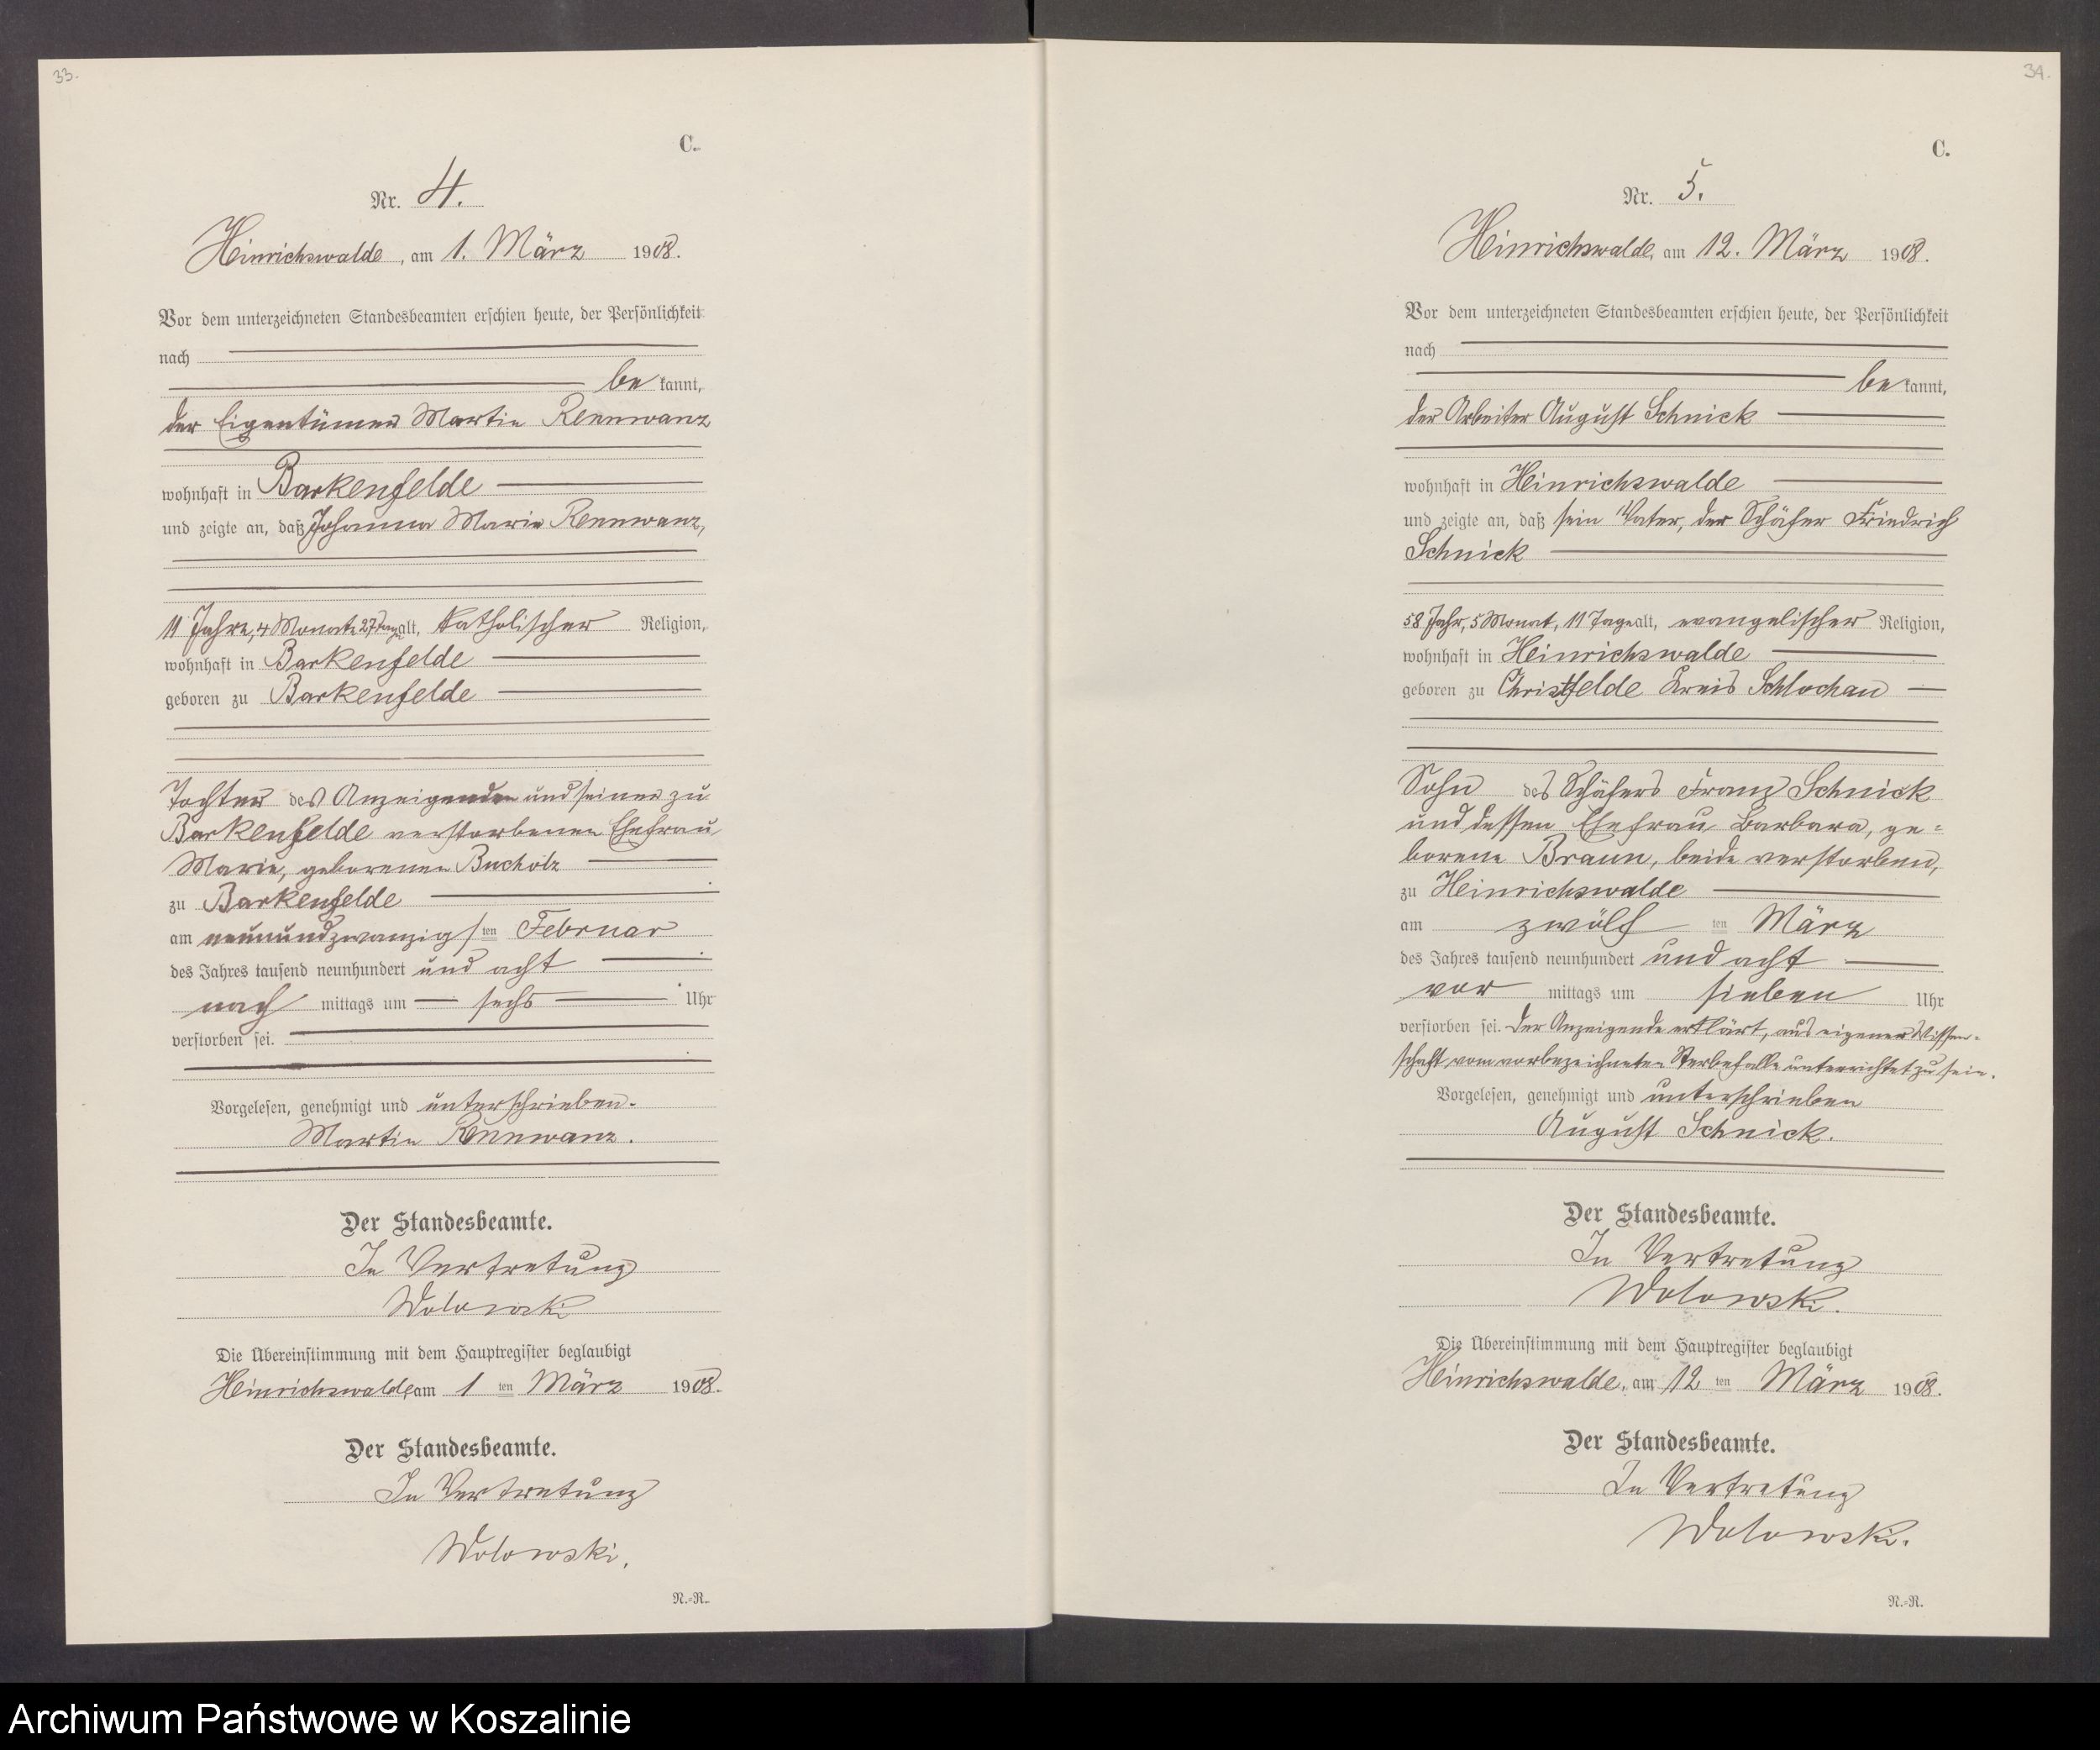 33.
C.
Nr. 4.
Heinrichswalde, am 1. März 1908.
Vor dem unterzeichneten Standesbeamten erschien heute, der Persönlichkeit
nach
be kannt,
der Eigentümer Martin Rennwanz
wohnhaft in Barkenfelde
und zeigte an, daß Johanna Maria Rennwanz,
11 Jahre, 4 Monate 27 Tage alt, katholischer Religion,
wohnhaft in Barkenfelde
geboren zu Barkenfelde
Tochter des Anzeigenden und seiner zu
Barkenfelde verstorbenen Ehefrau
Marie, geborenen Bucholz
zu Barkenfelde
am neunundzwanzigsten Februar
des Jahres tausend neunhundert und acht
nach mittags um sechs Uhr
verstorben sei.
Vorgelesen, genehmigt und unterschrieben.
Martin Rennwanz.
Der Standesbeamte.
In Vertretung
Wolowski
Die Übereinstimmung mit dem Hauptregister beglaubigt
Heinrichswalde, am 1 ten März 1908.
Der Standesbeamte.
In Vertretung
Wolowski.
N.-R.
34.
C.
Nr. 5.
Heinrichswalde, am 12. März 1908.
Vor dem unterzeichneten Standesbeamten erschien heute, der Persönlichkeit
nach
be kannt,
der Arbeiter August Schnick
wohnhaft in Heinrichswalde
und zeigte an, daß sein Vater, der Schäfer Friedrich
Schnick
58 Jahr, 5 Monat, 11 Tage alt, evangelischer Religion,
wohnhaft in Heinrichswalde
geboren zu Christfelde Kreis Schlochau
Sohn des Schäfers Franz Schnick
und dessen Ehefrau Barbara, ge=
borene Braun, beide verstorben,
zu Heinrichswalde
am zwölf ten März
des Jahres tausend neunhundert und acht
vor mittags um sieben Uhr
verstorben sei. Der Anzeigende erklärt, aus eigener Wissen=
schaft vom vorbezeichneten Sterbefalle unterrichtet zu sein.
Vorgelesen, genehmigt und unterschrieben
August Schnick.
Der Standesbeamte.
In Vertretung
Wolowski.
Die Übereinstimmung mit dem Hauptregister beglaubigt
Heinrichswalde, am 12 ten März 1908.
Der Standesbeamte.
In Vertretung
Wolowski.
N.-R.
Archiwum Państwowe w Koszalinie